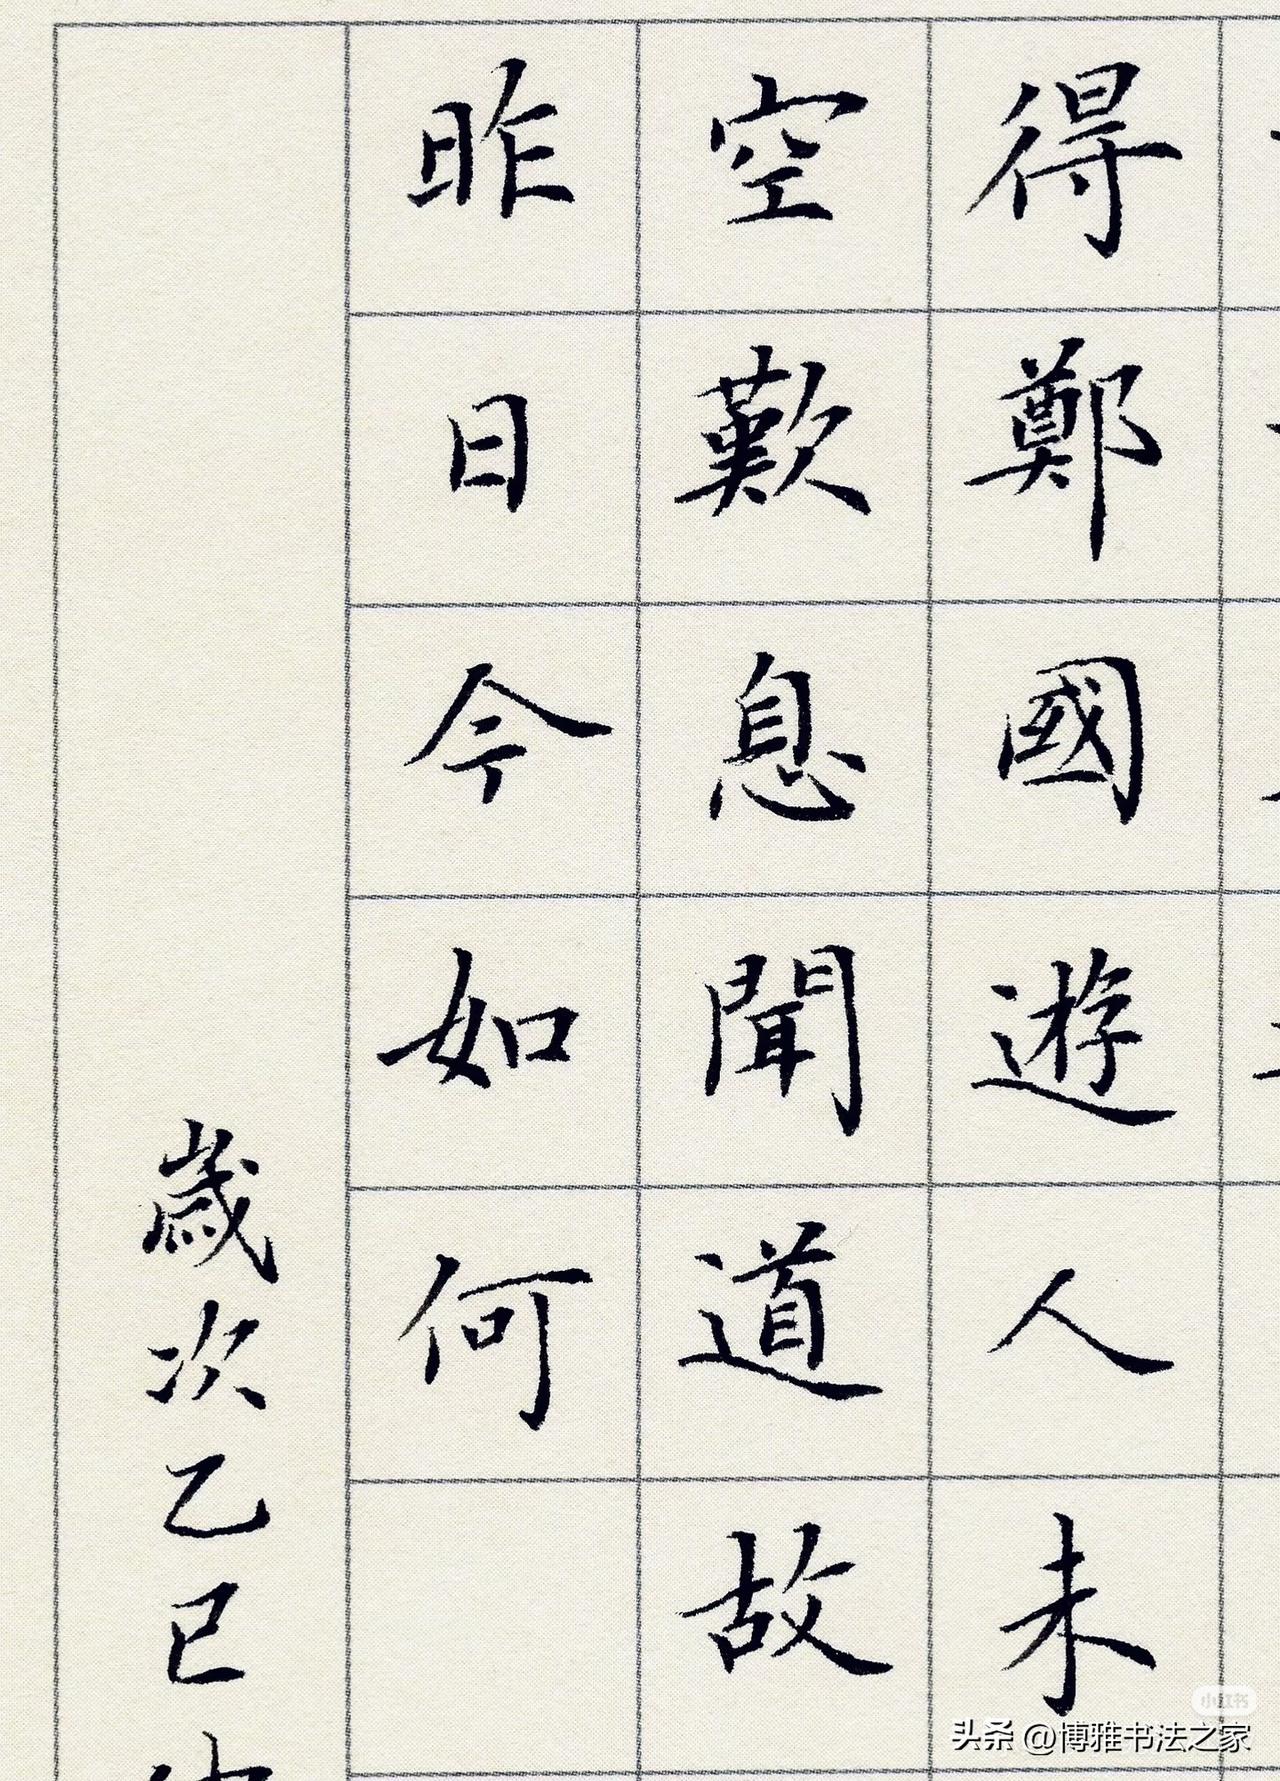 得鄭國遊人未
空歎息聞道故
昨日今如何
歲次乙巳
小红书
头条 @博雅书法之家